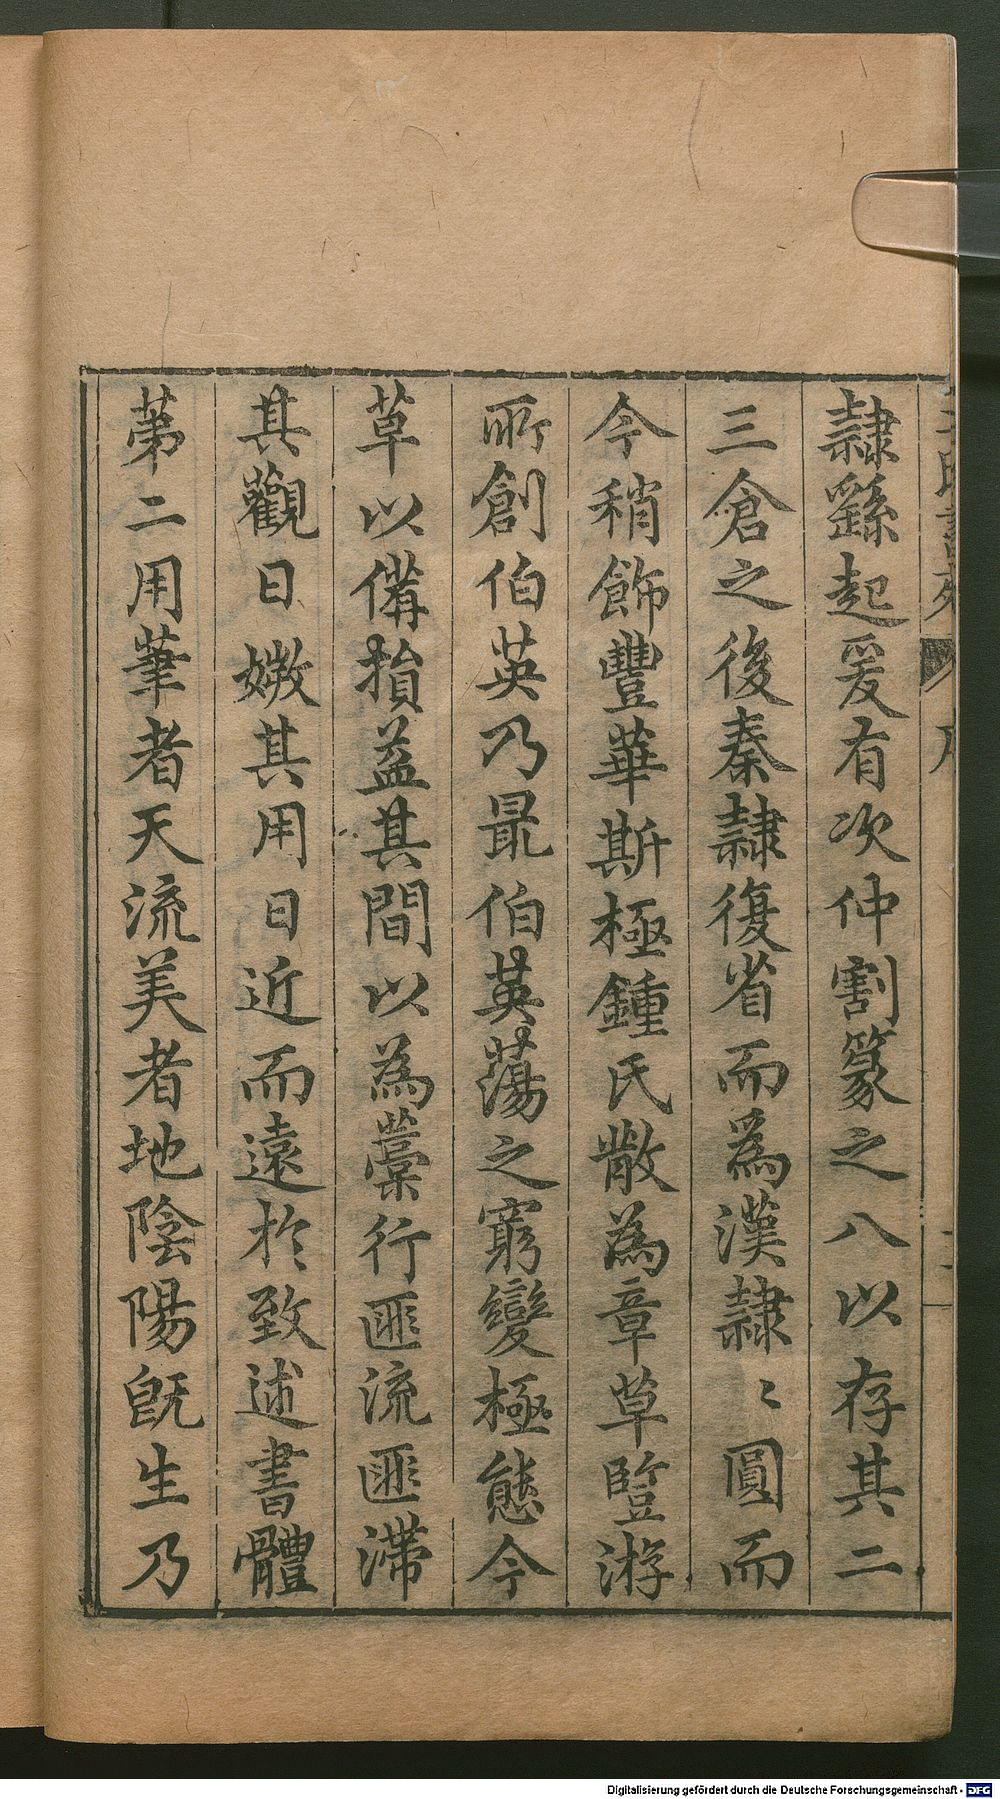 隷繇起爰有次仲割篆之八以存其二
三倉之後秦隷復省而為漢隷〻圓而
今稍飾豐華斯極鍾氏散為章草暨游
所創伯英乃最伯英蕩之窮變極態今
草以備損益其間以為藁行匪流匪滯
其觀日媺其用日近而遠於致述書體
第二用筆者天流美者地陰陽既生乃
序
Digitalisierung gefördert durch die Deutsche Forschungsgemeinschaft - DFG